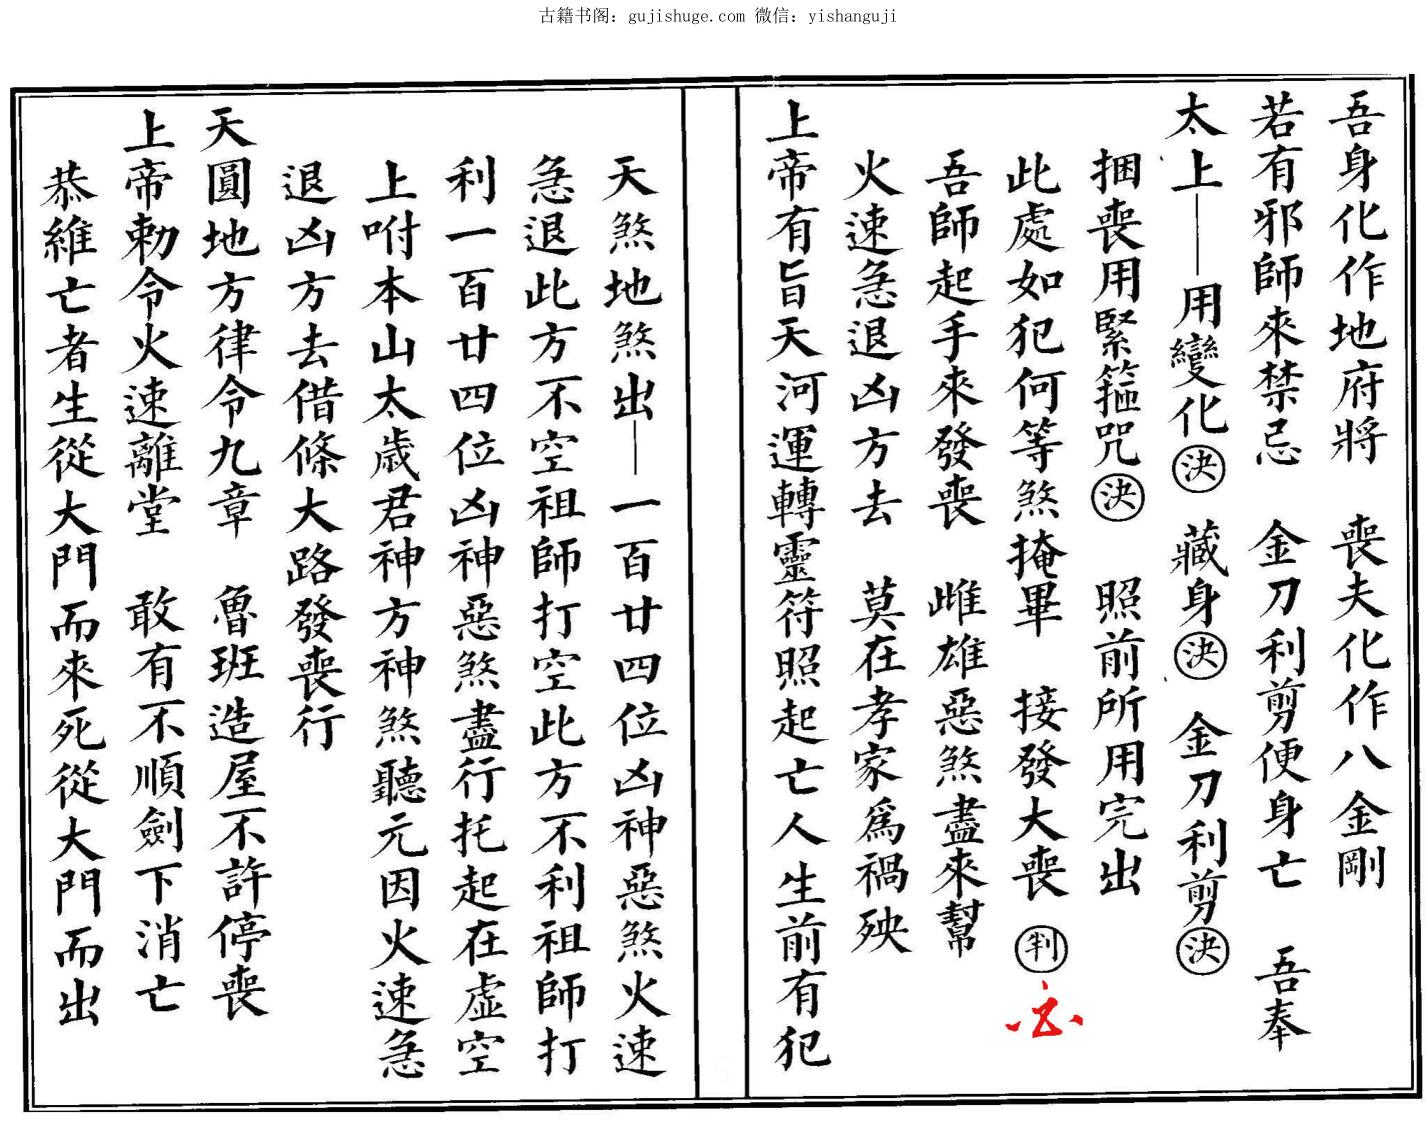 古籍书阁：gujishuge.com 微信：yishanguji
吾身化作地府將　喪夫化作八金剛
若有邪師來禁忌　金刀利剪便身亡　吾奉
太上——用變化㊀決　藏身決　金刀利剪決
捆喪用緊箍咒決　照前所用完出
此處如犯何等煞掩畢　接發大喪　判
吾師起手來發喪　雌雄惡煞盡來幫
火速急退凶方去　莫在孝家為禍殃
上帝有旨天河運轉靈符照起亡人生前有犯
天煞地煞出——一百廿四位凶神惡煞火速
急退此方不空祖師打空此方不利祖師打
利一百廿四位凶神惡煞盡行托起在虛空
上咐本山太歲君神方神煞聽元因火速急
退凶方去借條大路發喪行
天圓地方律令九章　魯班造屋不許停喪
上帝勅令火速離堂　敢有不順劍下消亡
恭維亡者生從大門而來死從大門而出